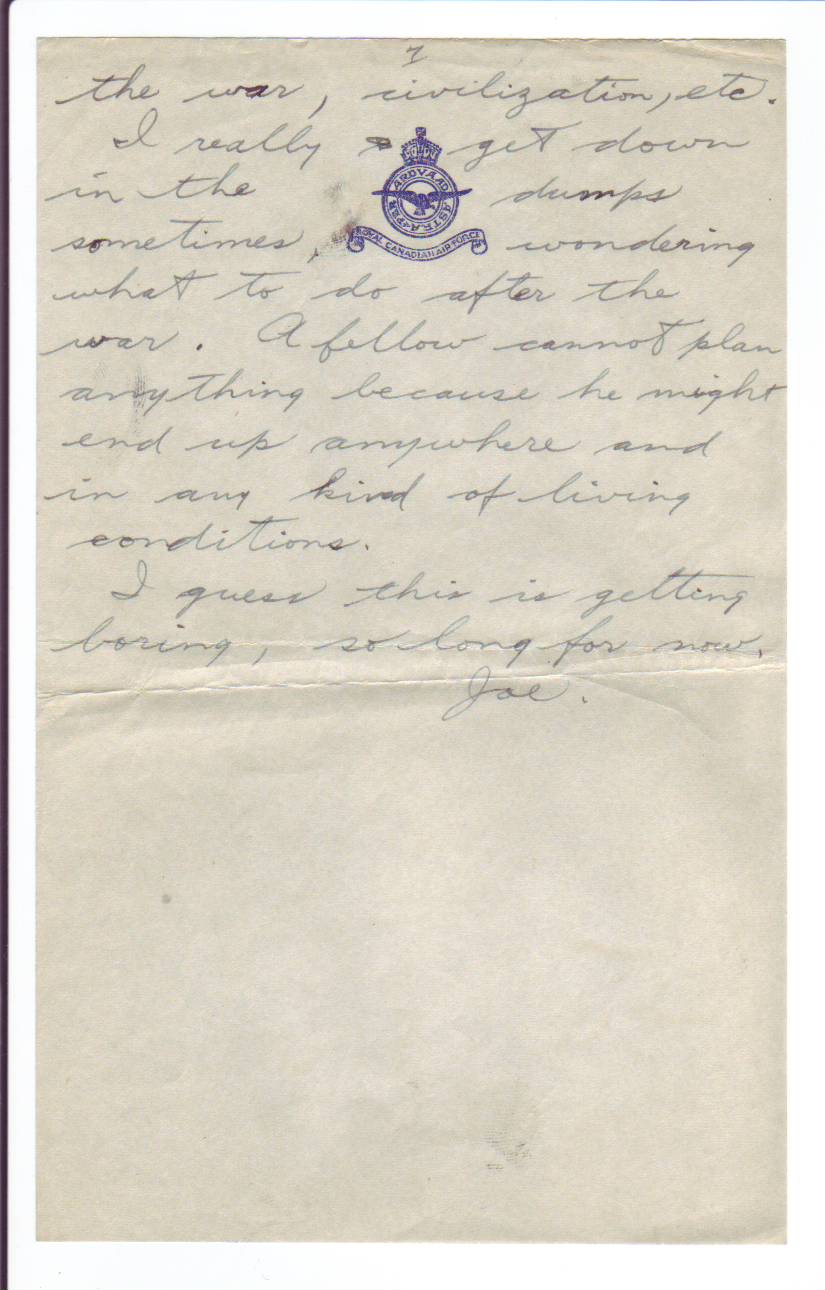 7
the war, civilization, etc.
I really get down
in the dumps
sometimes, wondering
what to do after the
war. A fellow cannot plan
anything because he might
end up anywhere and
in any kind of living
conditions.
I guess this is getting
boring, so long for now.
Joe.
PER ARDVA AD ASTRA
ROYAL CANADIAN AIR FORCE